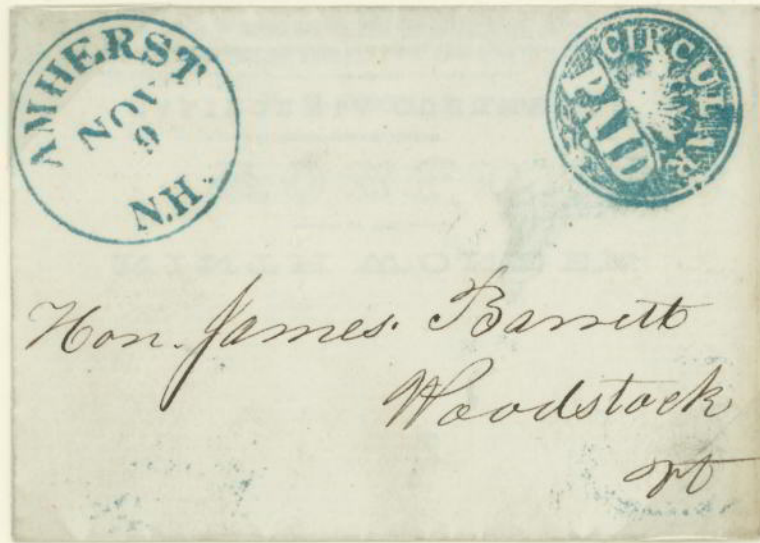 AMHERST
NOV
9
N.H.
CIRCULAR
PAID
Hon. James. Barrett
Woodstock
Vt